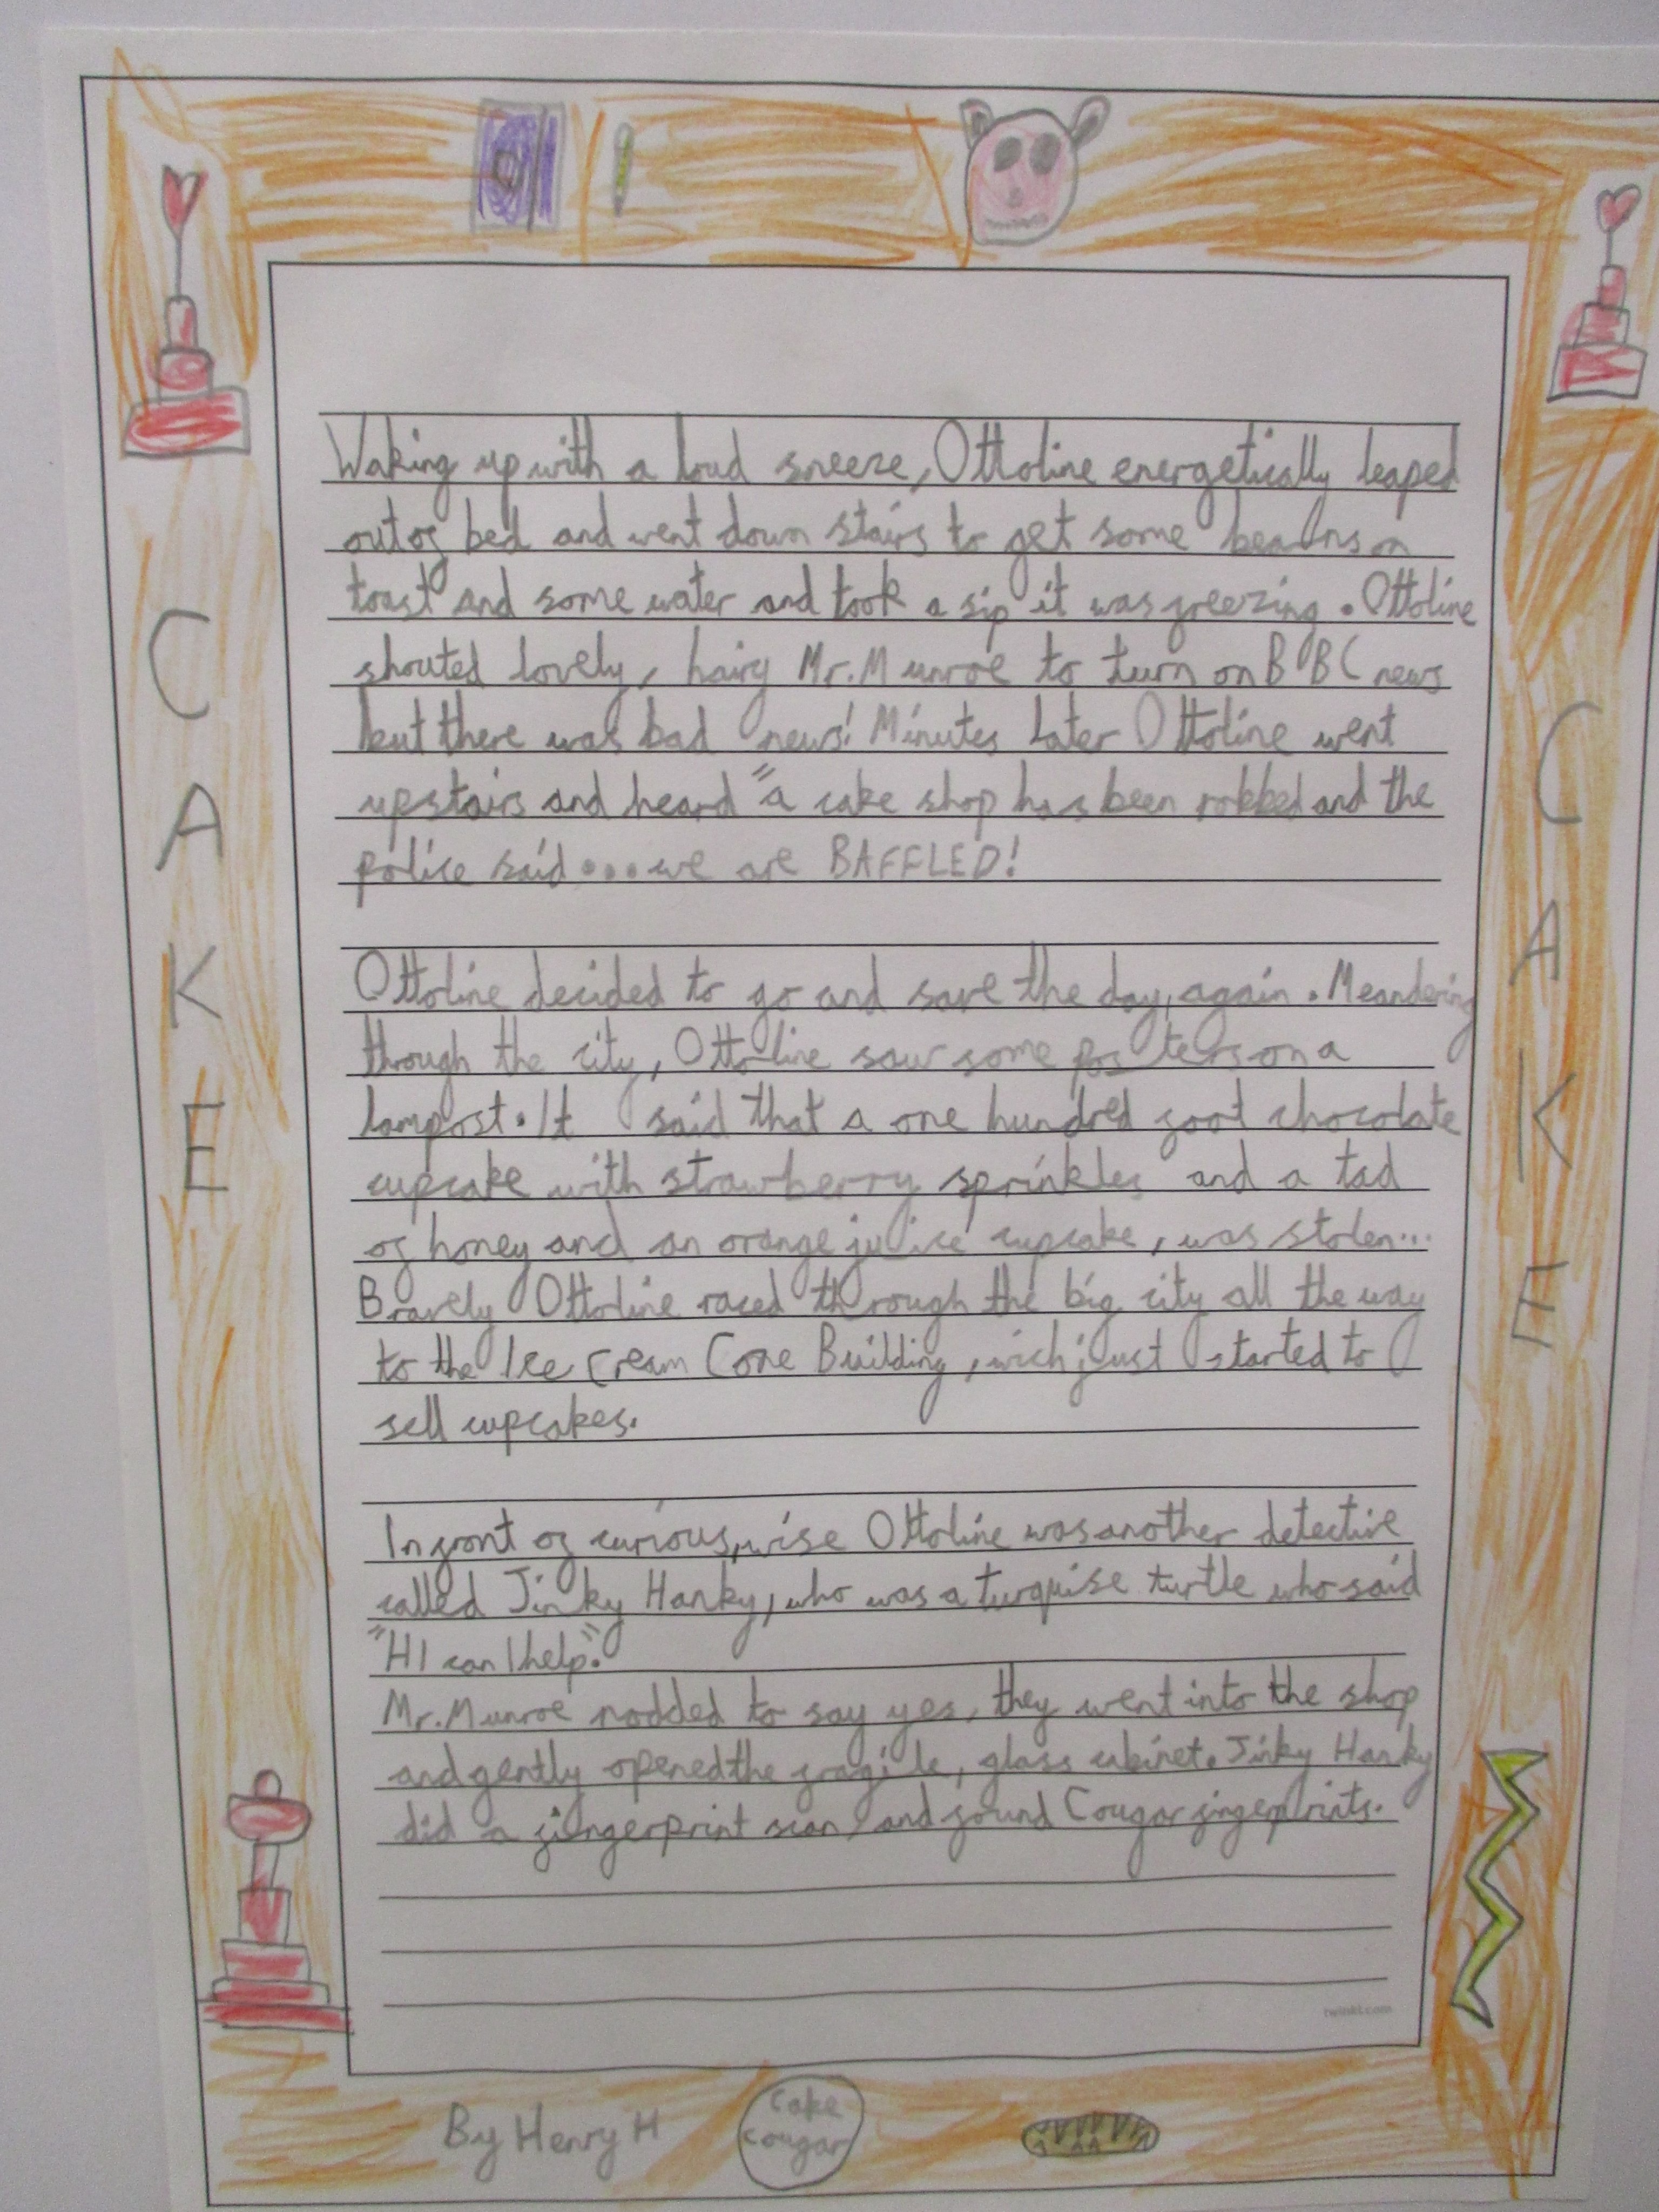 Waking up with a loud sneeze, Ottoline energetically leaped
out of bed and went down stairs to get some beans on
toast and some water and took a sip it was freezing. Ottoline
shouted lovely, hairy Mr. Munroe to turn on BBC news
but there was bad news! Minutes later Ottoline went
upstairs and heard "a cake shop has been robbed and the
police said... we are BAFFLED!
Ottoline decided to go and save the day, again. Meandering
through the city, Ottoline saw some posters on a
lampost. It said that a one hundred foot chocolate
cupcake with strawberry sprinkles and a tad
of honey and an orange juice cupcake, was stolen...
Bravely Ottoline raced through the big city all the way
to the Ice Cream Cone Building, wich just started to
sell cupcakes.
In front of curious, wise Ottoline was another detective
called Jinky Hanky, who was a turquise turtle who said
"HI can I help."
Mr. Munroe nodded to say yes, they went into the shop
and gently opened the fragile, glass cabinet. Jinky Hanky
did a fingerprint scan and found Cougar fingerprints.
twinkl.com
CAKE
CAKE
By Henry H
Cake
Cougar